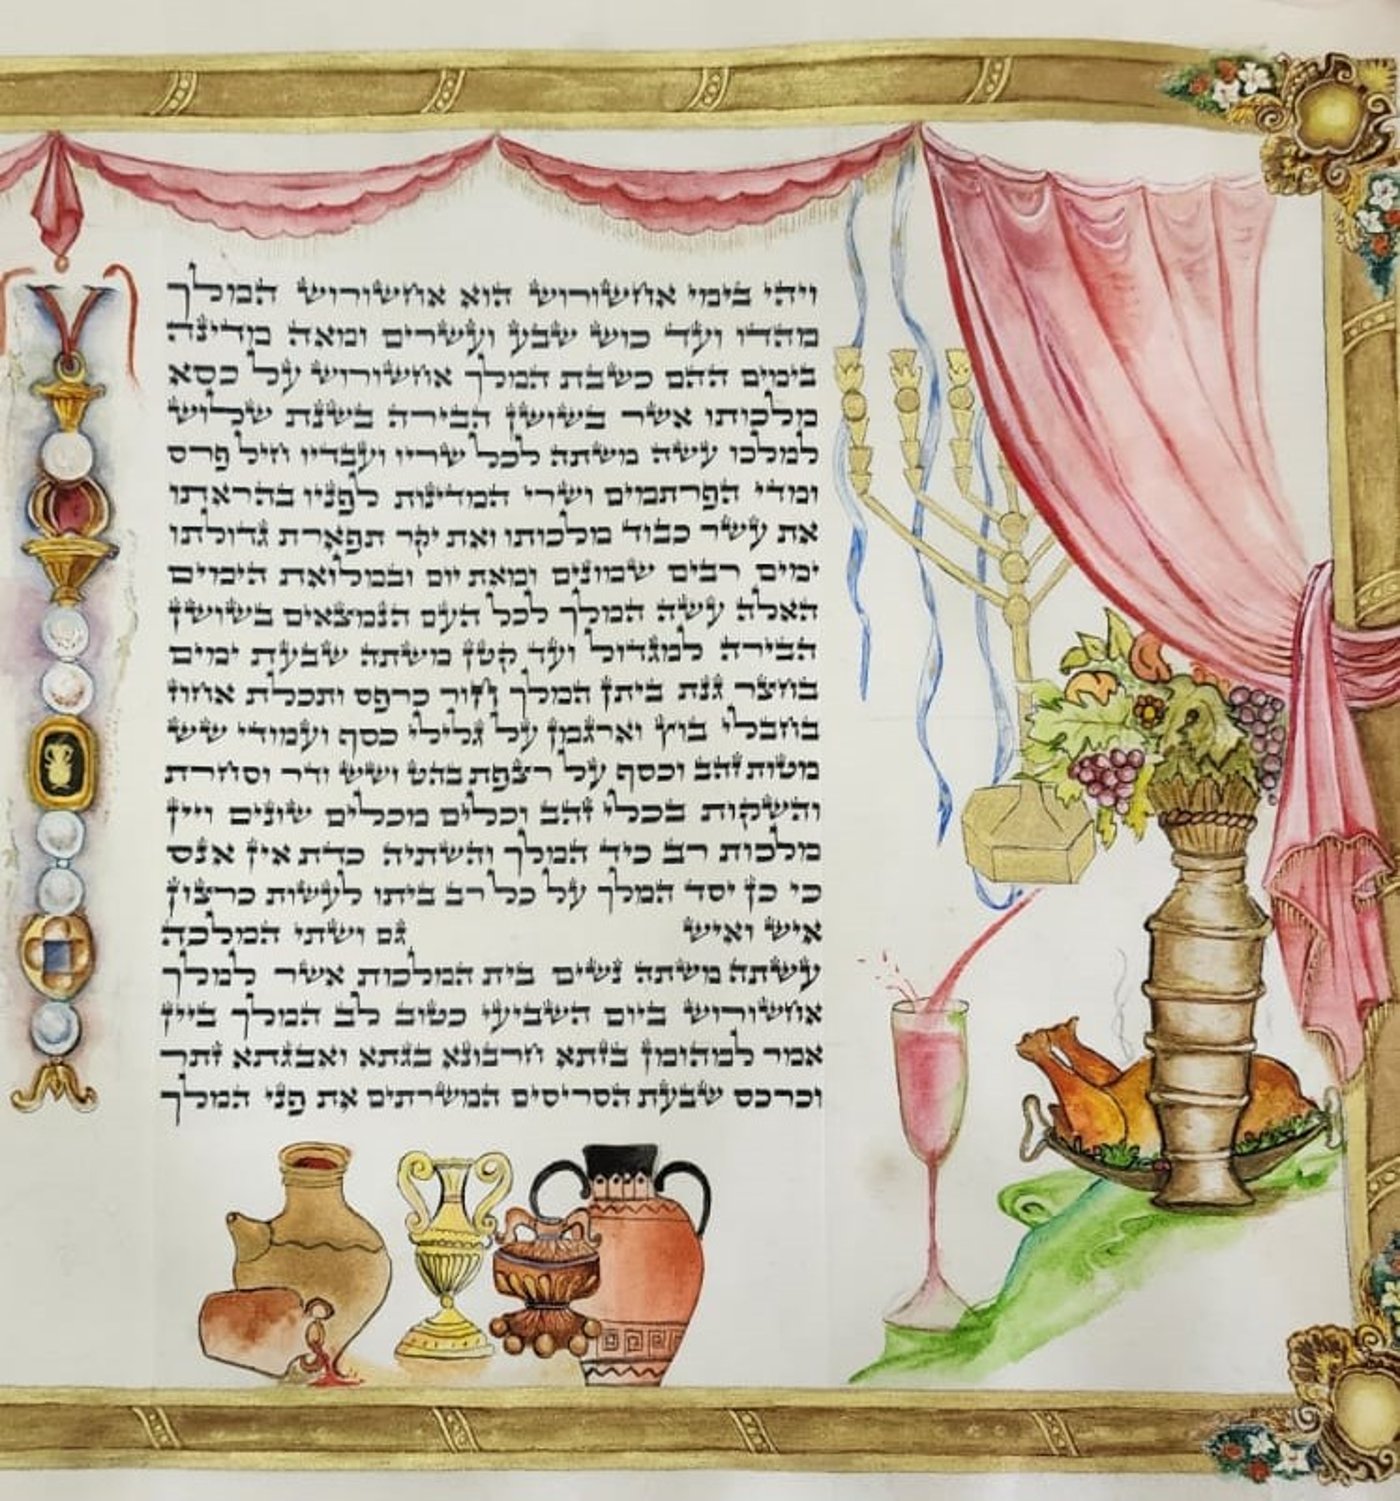 ויהי בימי אחשורוש הוא אחשורוש המלך
מהדו ועד כוש שבע ועשרים ומאה מדינה
בימים ההם כשבת המלך אחשורוש על כסא
מלכותו אשר בשושן הבירה בשנת שלוש
למלכו עשה משתה לכל שריו ועבדיו חיל פרס
ומדי הפרתמים ושרי המדינות לפניו בהראתו
את עשר כבוד מלכותו ואת יקר תפארת גדולתו
ימים רבים שמונים ומאת יום ובמלואת הימים
האלה עשה המלך לכל העם הנמצאים בשושן
הבירה למגדול ועד קטן משתה שבעת ימים
בחצר גנת ביתן המלך חור כרפס ותכלת אחוז
בחבלי בוץ וארגמן על גלילי כסף ועמודי שש
מטות זהב וכסף על רצפת בהט ושש ודר וסחרת
והשקות בכלי זהב וכלים מכלים שונים ויין
מלכות רב כיד המלך והשתיה כדת אין אנס
כי כן יסד המלך על כל רב ביתו לעשות כרצון
איש ואיש גם ושתי המלכה
עשתה משתה נשים בית המלכות אשר למלך
אחשורוש ביום השביעי כטוב לב המלך ביין
אמר למהומן בזתא חרבונא בגתא ואבגתא זתר
וכרכס שבעת הסריסים המשרתים את פני המלך